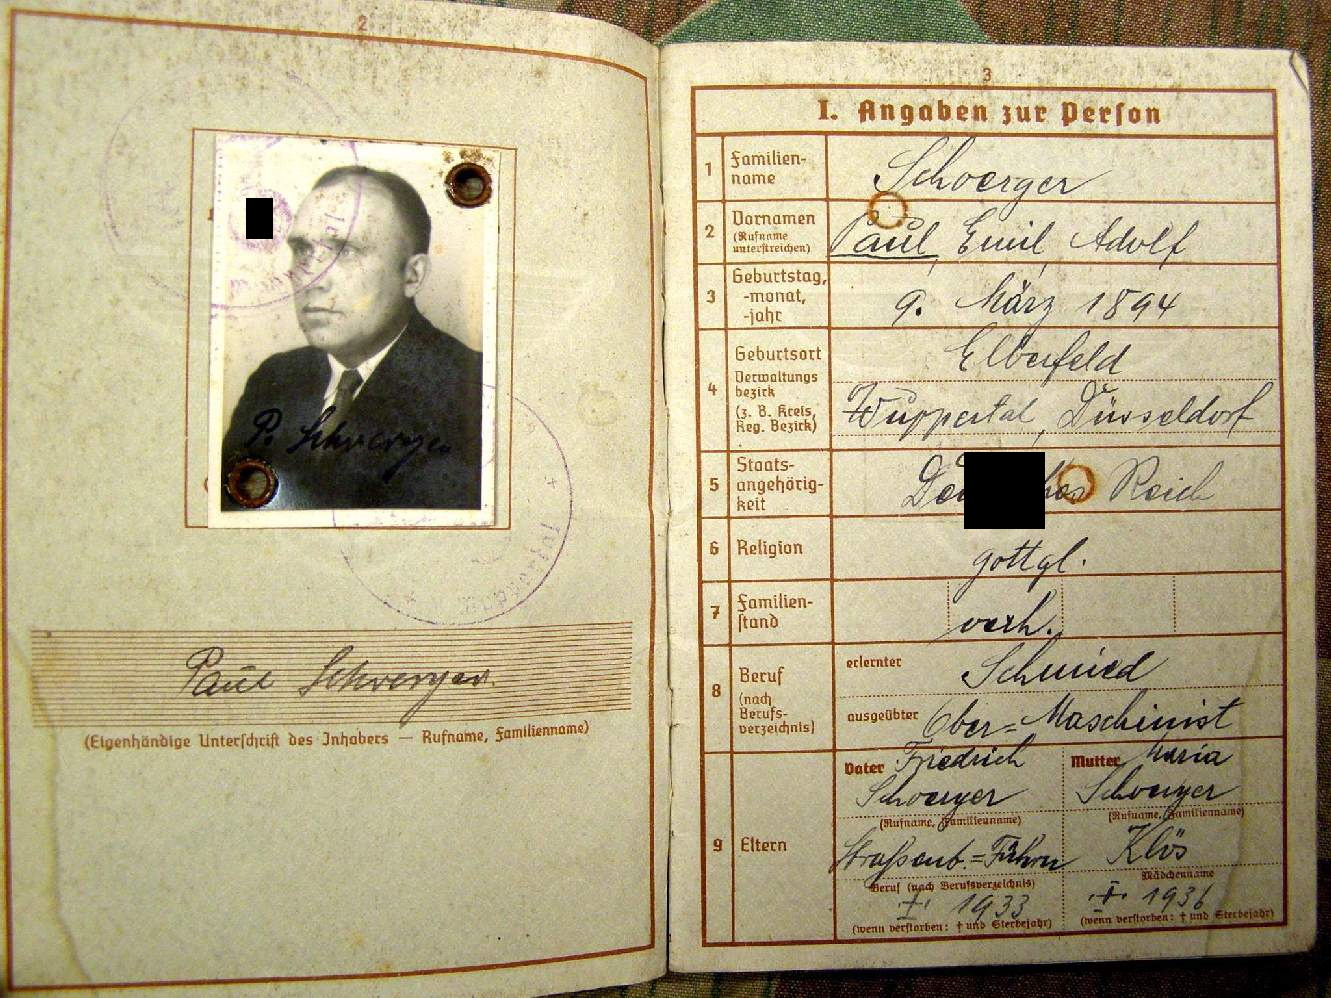 2
P. Schwerger
Paul Schwerger.
(Eigenhändige Unterschrift des Inhabers — Rufname, Familienname)
3
I. Angaben zur Person
1 Familien-
name
Schwerger
2 Vornamen
(Rufname
unterstreichen)
Paul, Emil Adolf
3 Geburtstag,
-monat,
-jahr
9. März 1894
4 Geburtsort
Elberfeld
Verwaltungs
bezirk
(z. B. Kreis,
Reg. Bezirk)
Wuppertal, Düsseldorf
5 Staats-
angehörig-
keit
Reich
6 Religion
gottgl.
7 Familien-
stand
verh.
8 Beruf
(nach
Berufs-
verzeichnis)
erlernter Schmied
ausgeübter Ober=Maschinist
9 Eltern
Vater Friedrich
Schwerger
(Rufname, Familienname)
Straßenb.=Führer
Beruf (nach Berufsverzeichnis)
1933
(wenn verstorben: † und Sterbejahr)
Mutter Maria
Schwerger
(Rufname, Familienname)
Klös
Mädchenname
1936
(wenn verstorben: † und Sterbejahr)